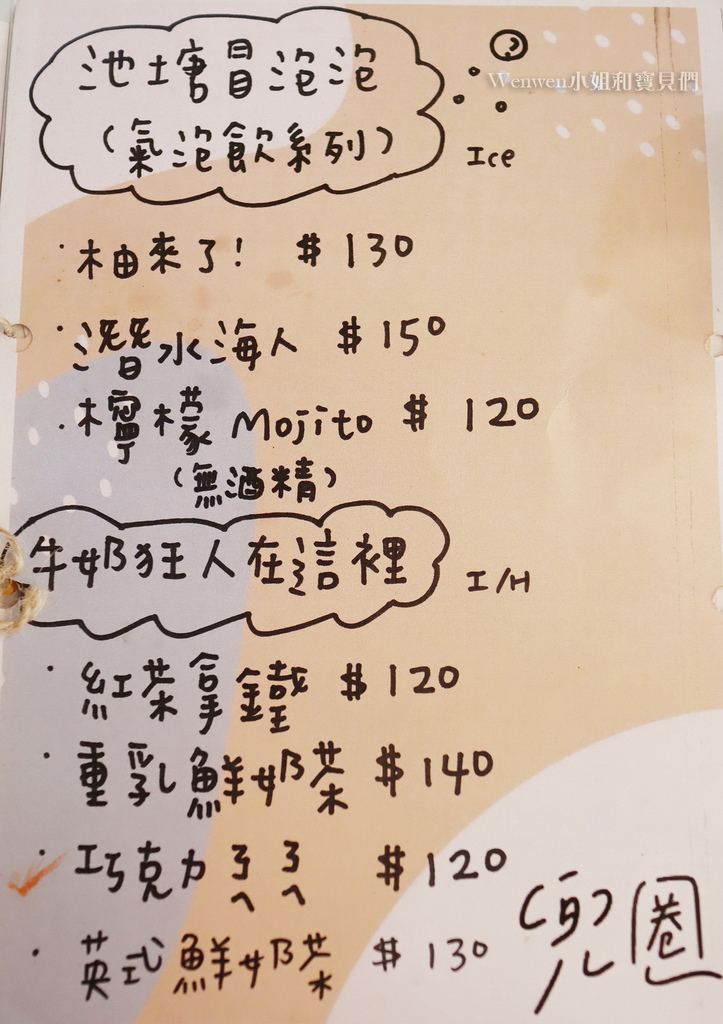 池塘冒泡泡
Wenwen小姐和寶貝們
（氣泡飲系列）
Ice
·柚來了! $130
·潛水海人 $150
·檸檬Mojito $120
（無酒精）
牛奶狂人在這裡
I/H
·紅茶拿鐵 $120
·重乳鮮奶茶 $140
·巧克力ㄋㄟㄋㄟ $120
·英式鮮奶茶 $130
兜圈